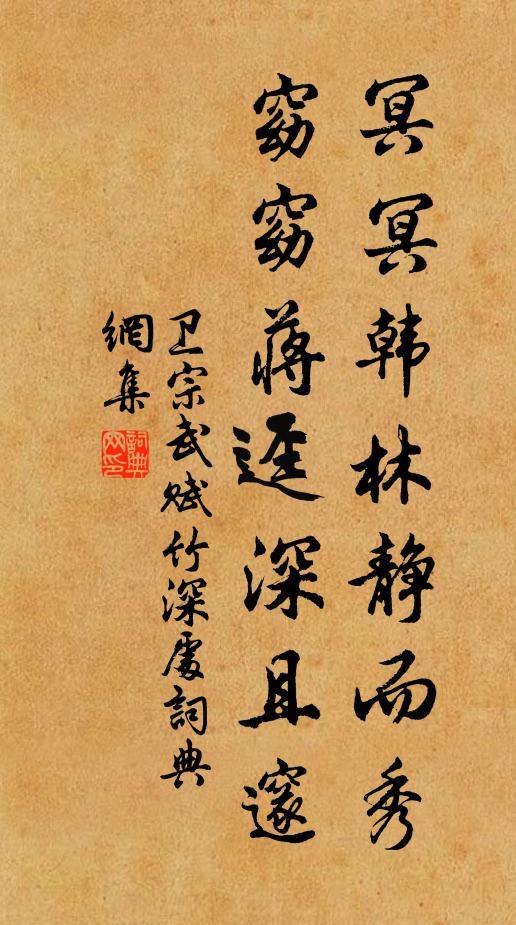 冥冥韩林静而秀
窈窈蒋迳深且邃
卫宗武赋竹深处詞典
網集
詞典
网印